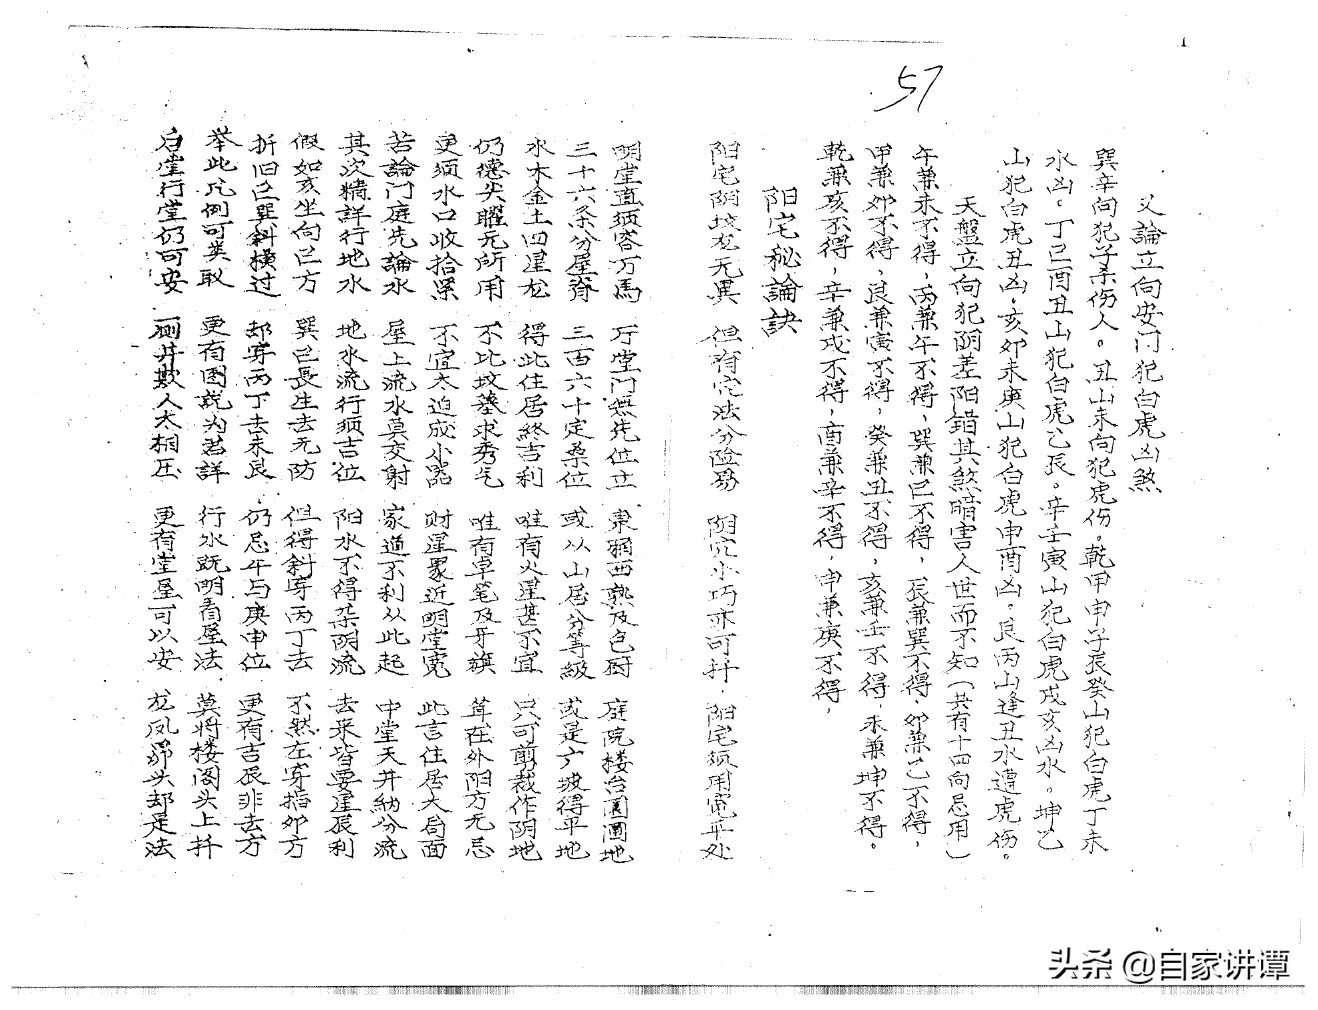 57
又論立向安门犯白虎凶煞
巽辛向犯子杀伤人。丑山未向犯虎伤。乾甲申子辰癸山犯白虎丁未
水凶。丁巳酉丑山犯白虎乙辰。辛壬寅山犯白虎戌亥凶水。坤乙
山犯白虎丑凶。亥卯未庚山犯白虎申酉凶。艮丙山逢丑水遭虎伤。
天盤立向犯阴差阳錯其煞暗害人世而不知(共有十四向忌用)
午兼未不得,丙兼午不得,巽兼巳不得,辰兼巽不得,卯兼乙不得,
甲兼卯不得,艮兼寅不得,癸兼丑不得,亥兼壬不得,未兼坤不得。
乾兼亥不得,辛兼戌不得,酉兼辛不得,申兼庚不得,
阳宅秘論訣
阳宅阴坟龙无異 但有穴法分险易 阴穴小巧亦可扦 阳宅须用宽平处
明堂直须容万馬 厅堂门庑先位立 東厢西熟及包厨 庭院楼台園圃地
三十六条分屋脊 三百六十定桑位 或从山居分等級 或是广坡得平地
水木金土四星龙 得此住居終吉利 唯有火星甚不宜 只可剪裁作阴地
仍德尖曜无所用 不比坟墓求秀气 唯有卓笔及牙旗 葺在外阳方无忌
更须水口收拾深 不宜太迫成小器 财星最近明堂宽 此言住居大局面
若論门庭先論水 屋上流水莫交射 家道不利从此起 中堂天井納分流
其次精詳行地水 地水流行须吉位 阳水不得杂阴流 去来皆要星辰利
假如亥坐向巳方 巽巳長生去无防 但得斜穿丙丁去 不然左穿指卯方
折旧巳巽斜横过 却穿丙丁去未良 仍忌午与庚申位 更有吉辰非去方
举此凡例可类取 更有图説为君詳 行水既明看屋法 莫将楼阁头上扦
后堂行堂仍可安 一厕井欺人大相压 更有堂屋可以安 龙凤昂头却是法
头条 @自家讲谭